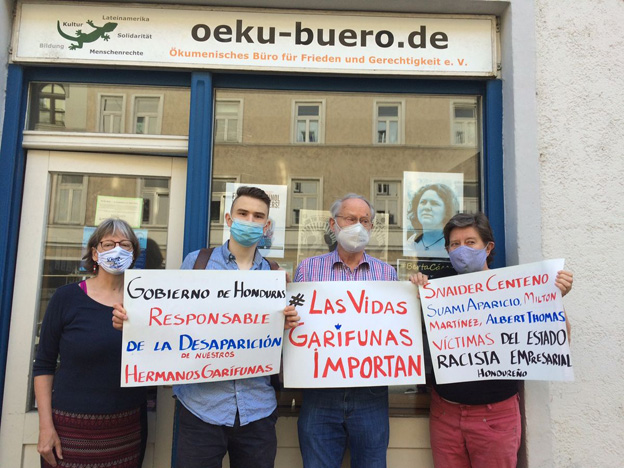 Kultur
Lateinamerika
Solidarität
Bildung
Menschenrechte
oeku-buero.de
Ökumenisches Büro für Frieden und Gerechtigkeit e. V.
GOBIERNO DE HONDURAS
RESPONSABLE
DE LA DESAPARICIÓN
DE NUESTROS
HERMANOS GARÍFUNAS
#LAS VIDAS
GARÍFUNAS
IMPORTAN
SNAIDER CENTENO
SUAMI APARICIO, MILTON
MARTÍNEZ, ALBERT THOMAS,
VÍCTIMAS DEL ESTADO
RACISTA EMPRESARIAL
HONDUREÑO